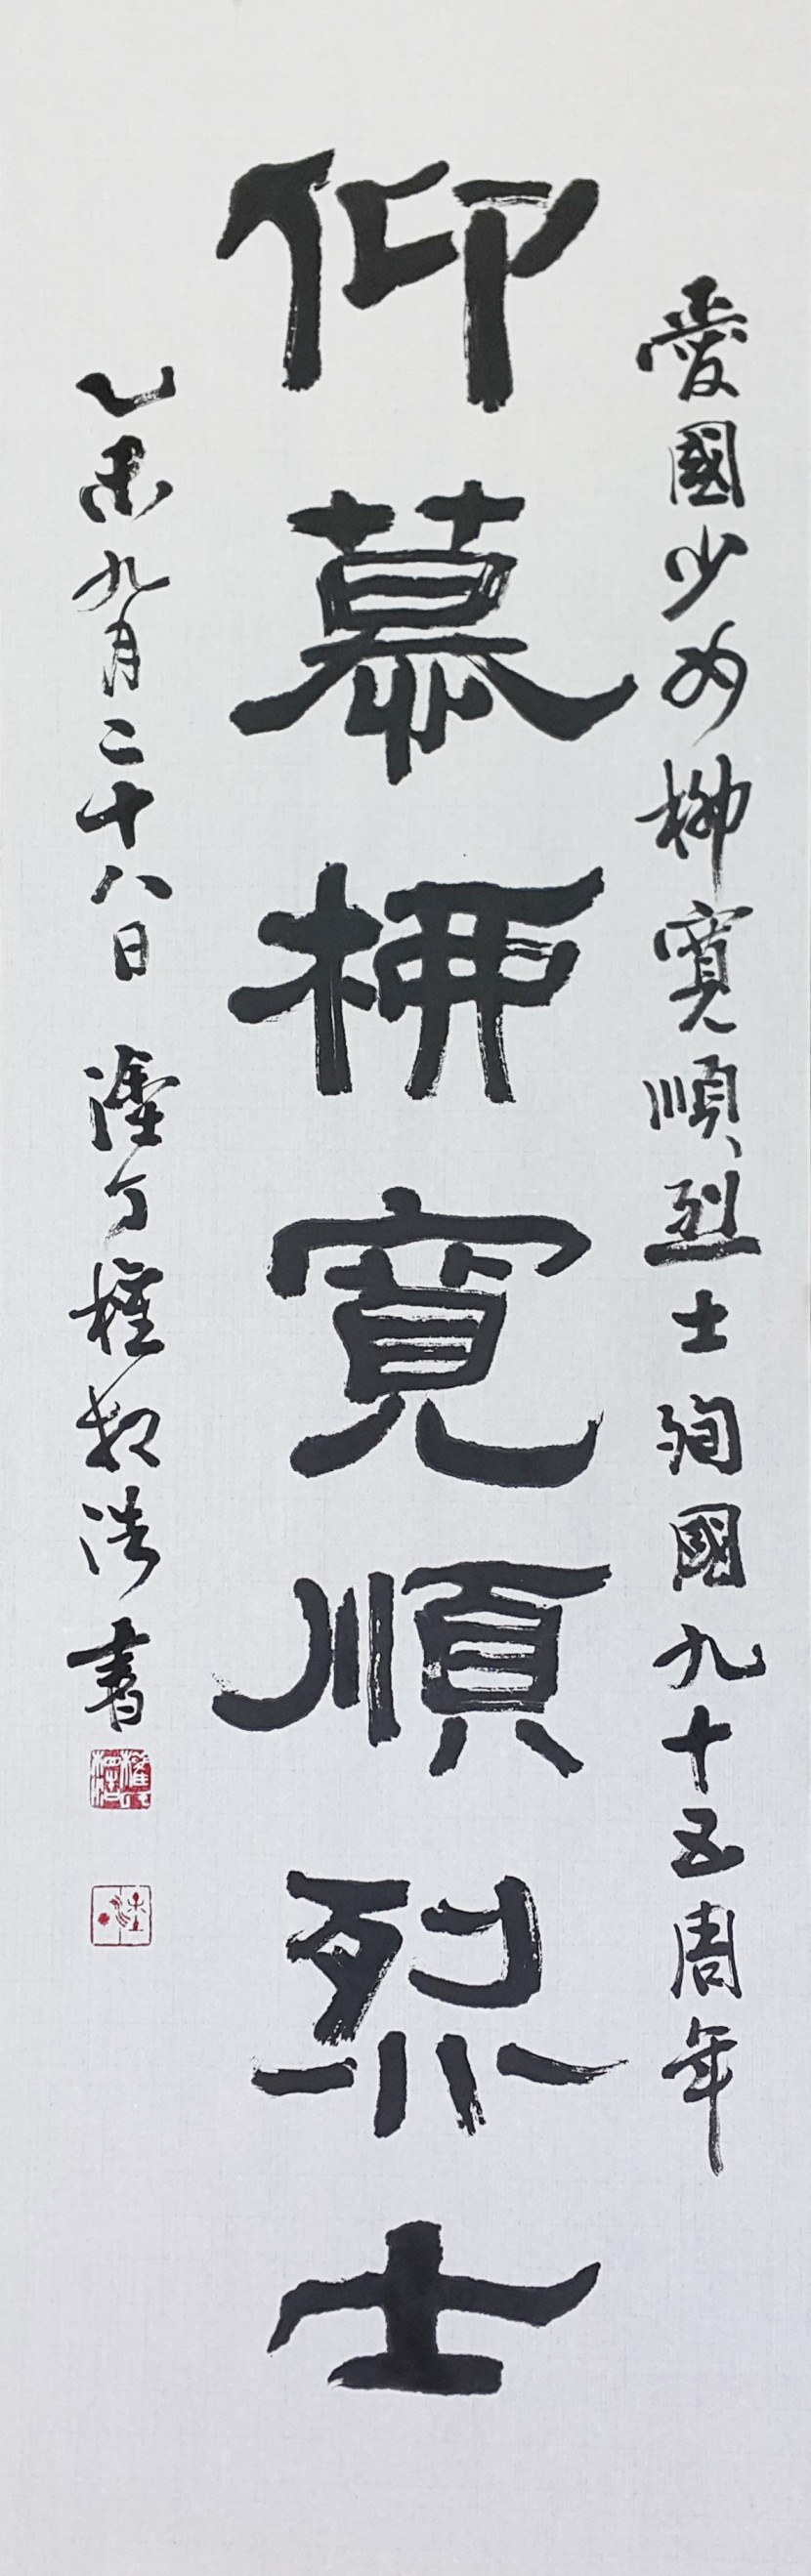 愛國少女柳寬順烈士殉國九十五周年
仰慕柳寬順烈士
乙未九月二十八日 塗丁權相浩書